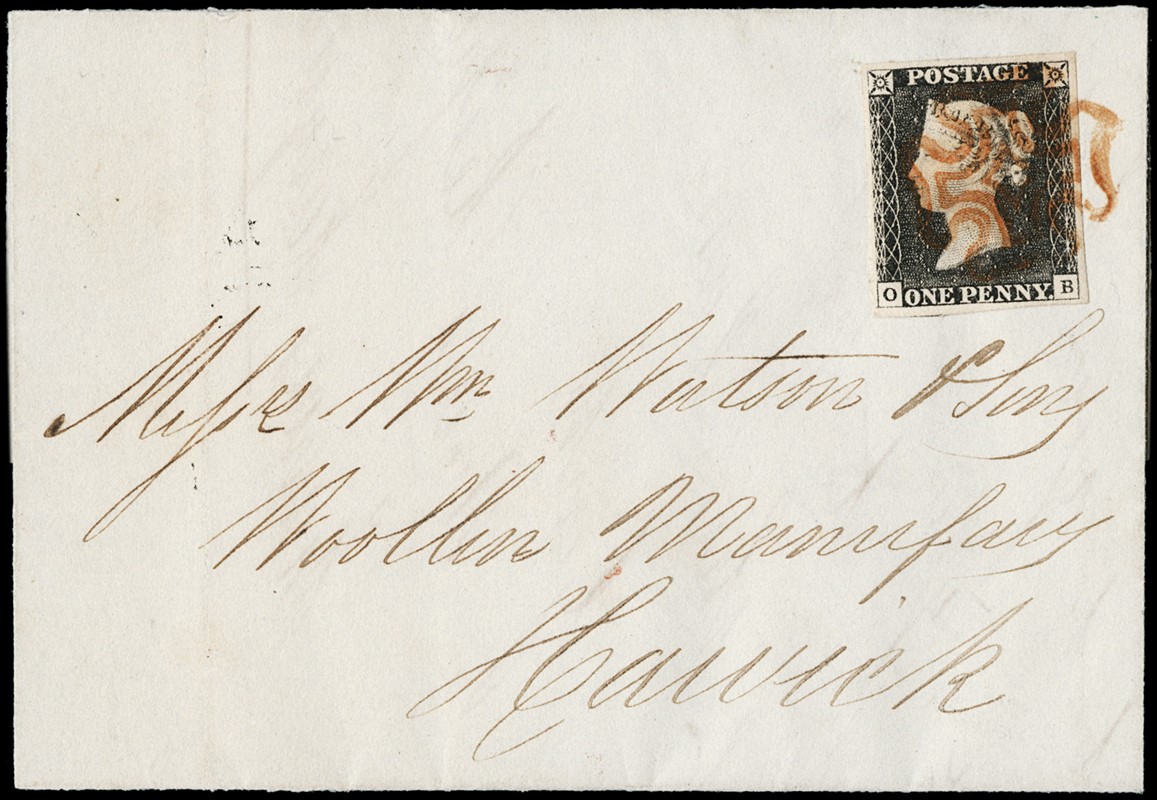 POSTAGE
O ONE PENNY. B
Messrs Wm Watson & Sons
Woollen Manufars
Hawick